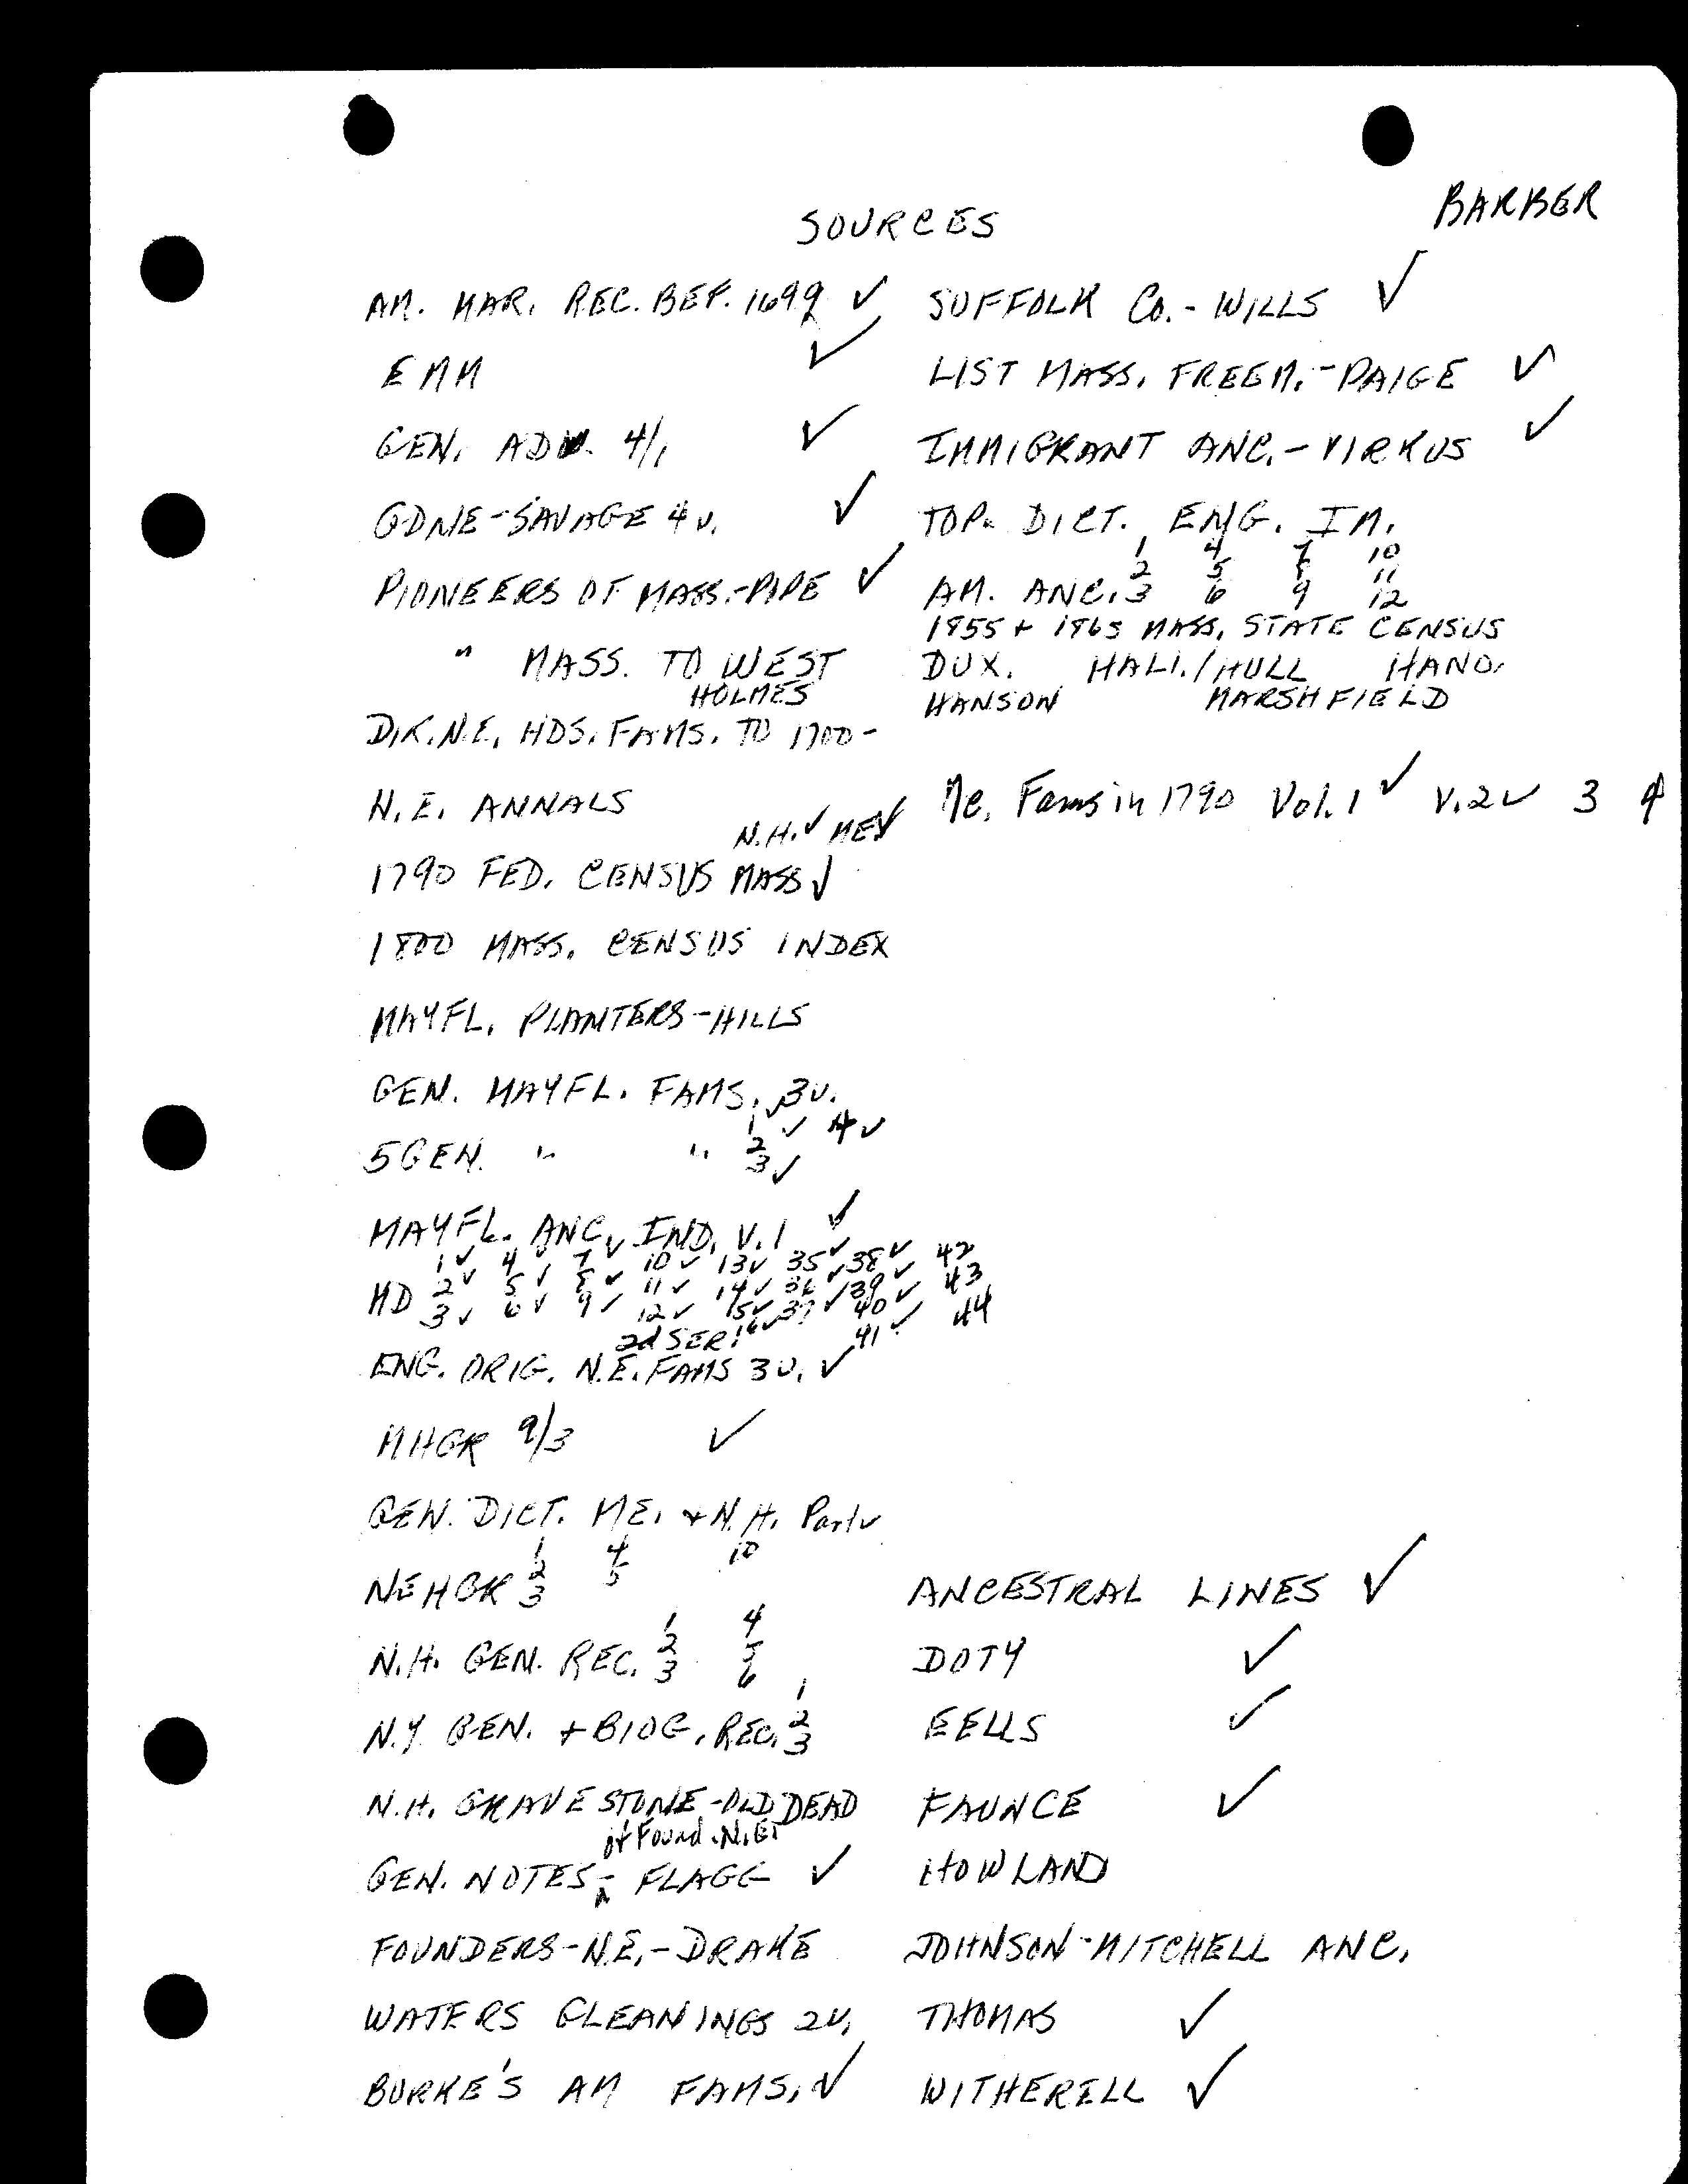 BARBER
SOURCES
AM. MAR. REC. BEF. 1699 ✓
EMM ✓
GEN. ADV. 4/1 ✓
GDNE-SAVAGE 4 v. ✓
PIONEERS OF MASS.-POPE ✓
" MASS. TO WEST
HOLMES
DIR. N.E. HDS. FAMS. TO 1700-
N.E. ANNALS
N.H. ✓ ME ✓
1790 FED. CENSUS MASS ✓
1800 MASS. CENSUS INDEX
MAYFL. PLANTERS-HILLS
GEN. MAYFL. FAMS. 3v.
1 ✓ 4 ✓
5 GEN. " " 2
3 ✓
MAYFL. ANC. IND. V. 1 ✓
1 ✓ 4 ✓ 7 ✓ 10 ✓ 13 ✓ 35 ✓ 38 ✓ 42
MD 2 ✓ 5 ✓ 8 ✓ 11 ✓ 14 ✓ 36 ✓ 39 ✓ 43
3 ✓ 6 ✓ 9 ✓ 12 ✓ 15 ✓ 37 ✓ 40 ✓ 44
2d SER! 16 ✓ 41 ✓
ENG. ORIG. N.E. FAMS 3v. ✓
MHGR 9/3 ✓
GEN. DICT. ME. + N.H. Part ✓
1 4 10
2 5
NEHGR 3
1 4
2 5
N.H. GEN. REC. 3 6
1
2
N.Y. GEN. + BIOG. REC. 3
N.H. GRAVESTONE-OLD DEAD
of Found. N.E.
GEN. NOTES - FLAGG ✓
FOUNDERS-N.E.-DRAKE
WATERS GLEANINGS 2v.
BURKE'S AM FAMS. ✓
SUFFOLK CO.-WILLS ✓
LIST MASS. FREEM.-PAIGE ✓
IMMIGRANT ANC.-VIRKUS ✓
TOP. DICT. ENG. IM.
1 4 7 10
2 5 8 11
AM. ANC. 3 6 9 12
1855 + 1865 MASS. STATE CENSUS
DUX. HALI./HULL HANO.
HANSON MARSHFIELD
Me. Fams in 1790 Vol. 1 ✓ V.2 ✓ 3 4
ANCESTRAL LINES ✓
DOTY ✓
EELLS ✓
FAUNCE ✓
HOWLAND
JOHNSON-MITCHELL ANC.
THOMAS ✓
WITHERELL ✓